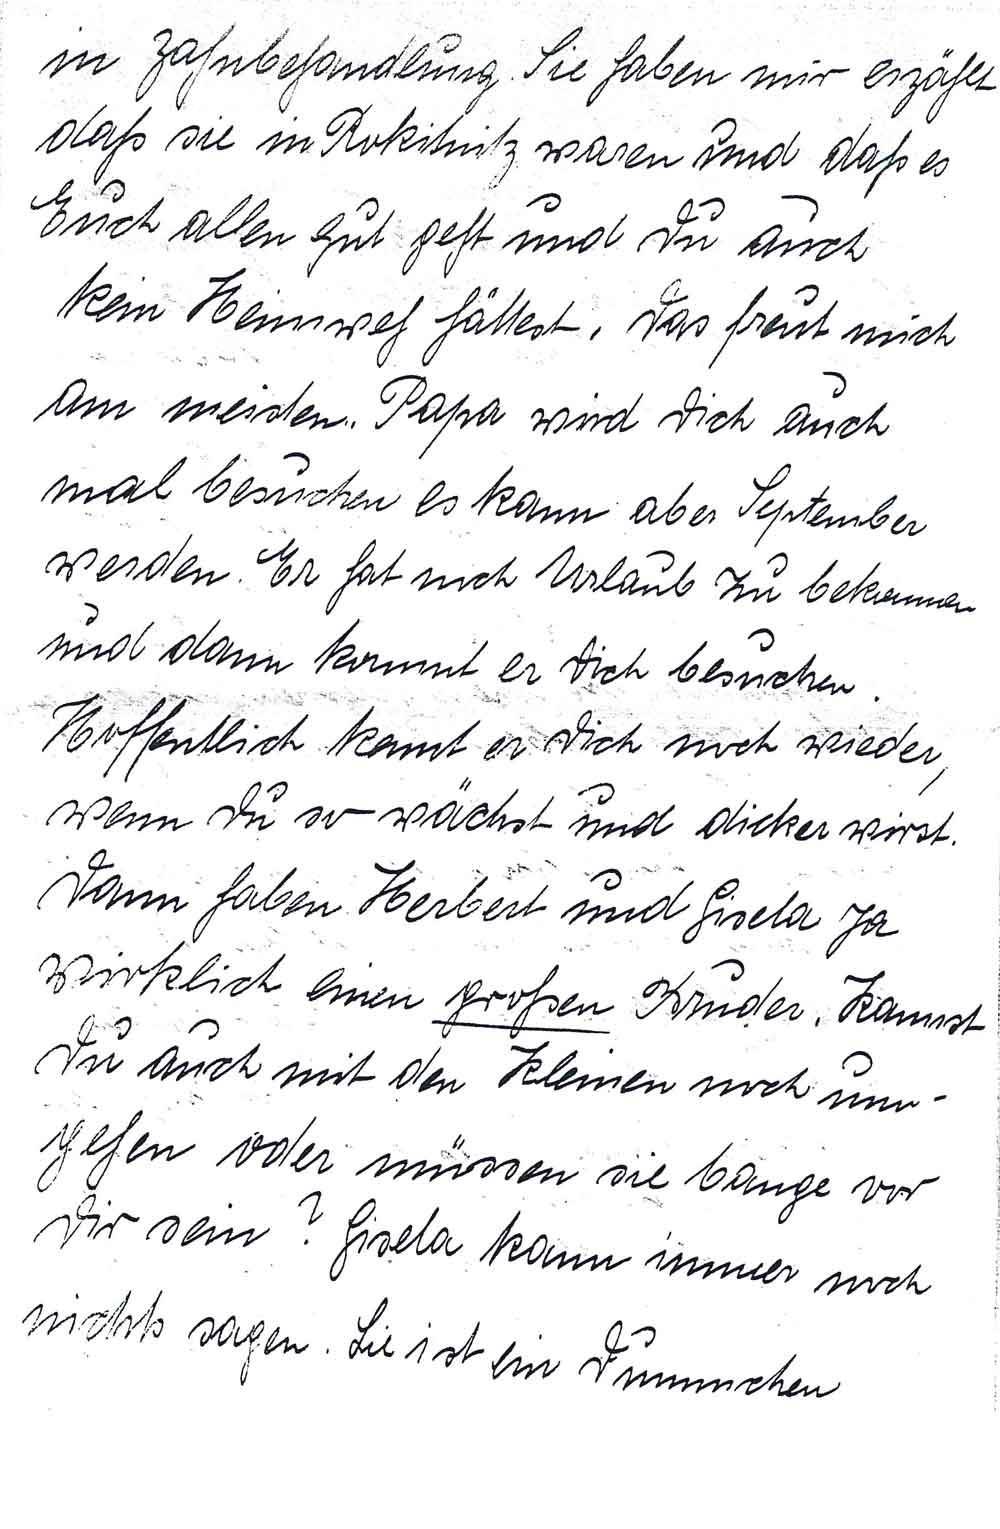 in Zahnbehandlung. Sie haben mir erzählt
daß sie in Rokitnitz waren und daß es
Euch allen gut geht und Du auch
kein Heimweh hättest. Das freut mich
am meisten. Papa wird Dich auch
mal besuchen es kann aber September
werden. Er hat noch Urlaub zu bekommen
und dann kommt er Dich besuchen.
Hoffentlich kennt er Dich noch wieder,
wenn Du so wächst und dicker wirst.
Dann haben Herbert und Gisela ja
wirklich einen großen Bruder. Kannst
Du auch mit den Kleinen noch um-
gehen oder müssen sie bange vor
Dir sein? Gisela kann immer noch
nichts sagen. Sie ist ein Dummchen